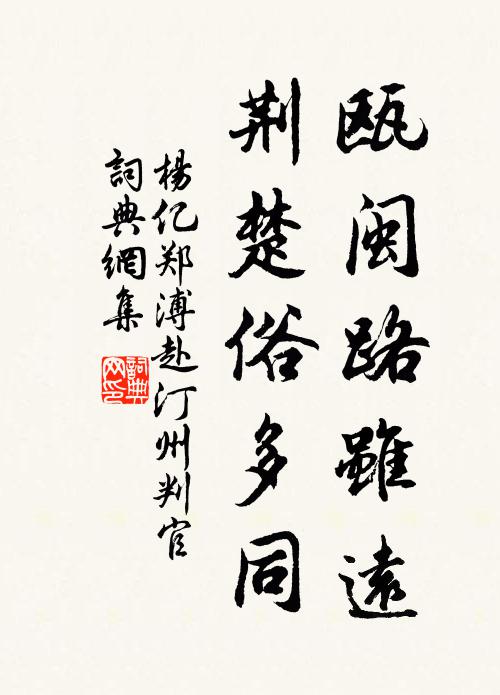 瓯闽路雖遠
荆楚俗多同
楊亿郑溥赴汀州判官
詞典網集
詞典
网印